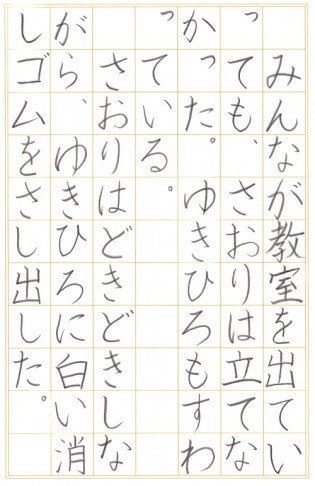 みんなが教室を出てい
っても、さおりは立てな
かった。ゆきひろもすわ
っている。
　さおりはどきどきしな
がら、ゆきひろに白い消
しゴムをさし出した。